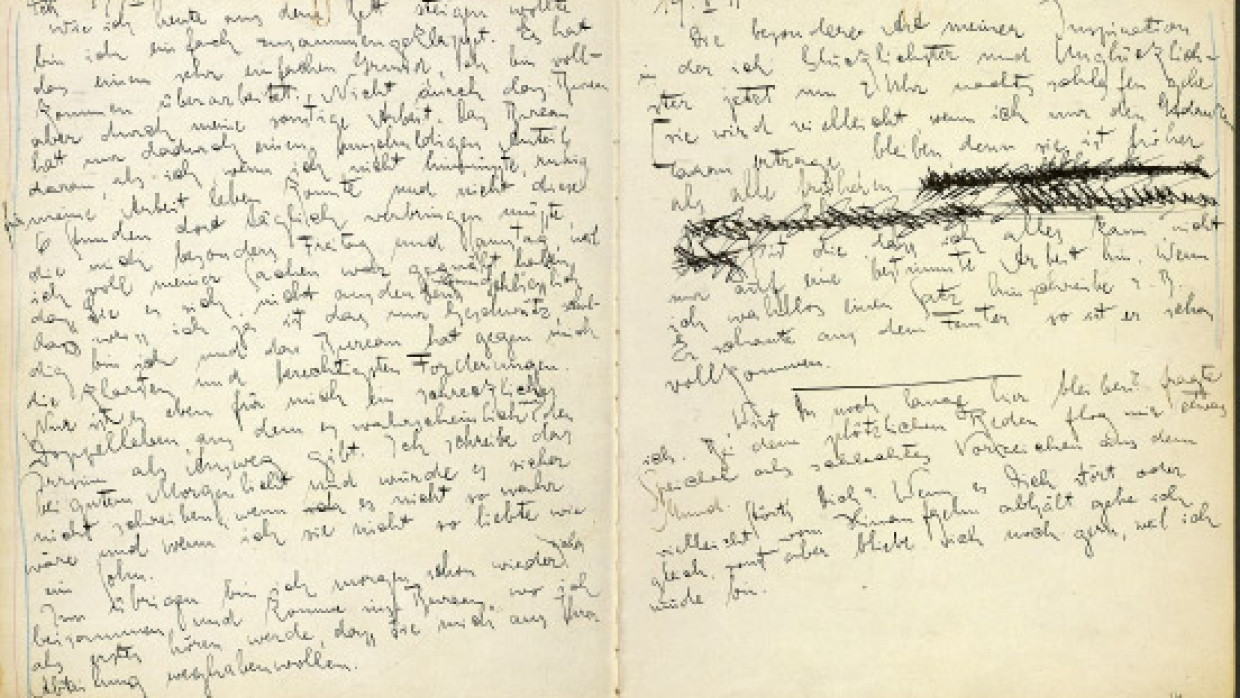 Wie ich heute aus dem Bett steigen wollte
bin ich einfach zusammengeklappt. Es hat
das einen sehr einfachen Grund, ich bin voll-
kommen überarbeitet. Nicht durch das Bureau
aber durch meine sonstige Arbeit. Das Bureau
hat nur dadurch einen unschuldigen Anteil
daran, als ich, wenn ich nicht hinmüßte, ruhig
für meine Arbeit leben könnte und nicht diese
6 Stunden dort täglich verbringen müßte,
die mich besonders Freitag und Samstag, weil
ich voll meiner Sachen war gequält haben,
daß Sie es sich nicht ausdenken Schließlich
das weiß ich ja ist das nur Geschwätz, schul-
dig bin ich und das Bureau hat gegen mich
die klarsten und berechtigsten Forderungen.
Nur ist es eben für mich ein schreckliches
Doppelleben, aus dem es wahrscheinlich nur den
Irrsinn als Ausweg gibt. Ich schreibe das
bei gutem Morgenlicht und würde es sicher
nicht schreiben, wenn es nicht so wahr
wäre und wenn ich Sie nicht so liebte wie
ein Sohn.
Im übrigen bin ich morgen schon wieder
beisammen und komme ins Bureau, wo ich
als erstes hören werde, daß Sie mich aus Ihrer
Abteilung weghaben wollen.
19. II 11
Die besondere Art meiner Inspiration
in der ich Glücklichster und Unglücklich-
ster jetzt um 2 Uhr nachts schlafen gehe
[sie wird vielleicht wenn ich nur den Gedanken
daran ertrage, bleiben, denn sie ist höher
als alle früheren
ist die daß ich alles kann nicht
nur auf eine bestimmte Arbeit hin. Wenn
ich wahllos einen Satz hinschreibe z. B.
Er schaute aus dem Fenster so ist er schon
vollkommen.
Wirst Du noch lange hier bleiben? fragte
ich. Bei dem plötzlichen Reden flog mir etwas
Speichel als schlechtes Vorzeichen aus dem
Mund. Störts Dich? Wenn es Dich stört oder
vielleicht vom Hinaufgehn abhält gehe ich
gleich, sonst aber bliebe ich noch gern, weil ich
müde bin.